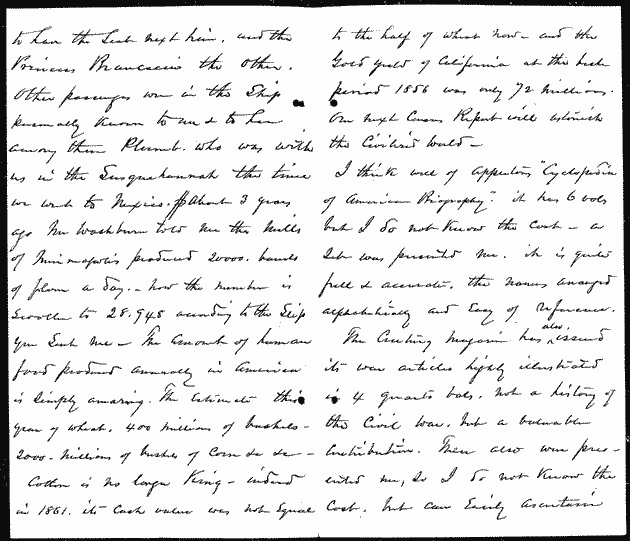 to have the Seat next him. and the
Princess Brancaccio the other.
Other passengers were in the Ship
personally Known to me & to her
among them Plumb. who was with
us in the Susquehannah the time
we went to Mexico. About 3 years
ago Mr Washburn told me the Mills
of Minneapolis produced 20000. barrels
of flour a day. - now the number is
Swollen to 28.948 according to the Slip
you Sent me - The amount of human
food produced annually in America
is Simply amazing. The Estimate this
year of wheat. 400 millions of bushels -
2000. Millions of bushels of Corn &c &c -
Cotton is no longer King - indeed
in 1861. its Cash value was not Equal
to the half of wheat now - and the
Gold yield of California at the
period 1856 was only 72 millions.
Our next Census Report will astonish
the Civilized World -
I think well of appletons "Cyclopedia
of American Biography". it has 6 vols
but I do not Know the Cost - a
Set was presented me. it is quite
full & accurate. the names arranged
alphabetically and Easy of reference.
The Century Magazine has also issued
its war articles highly illustrated
in 4 quarto vols. not a history of
the Civil War. but a valuable
Contribution. These also were pres-
ented me, So I do not Know the
Cost. but can Easily ascertain